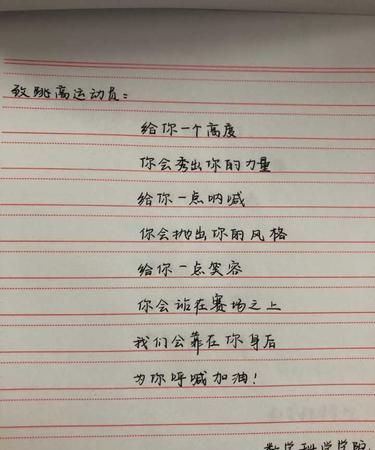 致跳高运动员：
给你一个高度
你会秀出你的力量
给你一点呐喊
你会抛出你的风格
给你一点笑容
你会站在赛场之上
我们会靠在你身后
为你呼喊加油！
数学科学学院